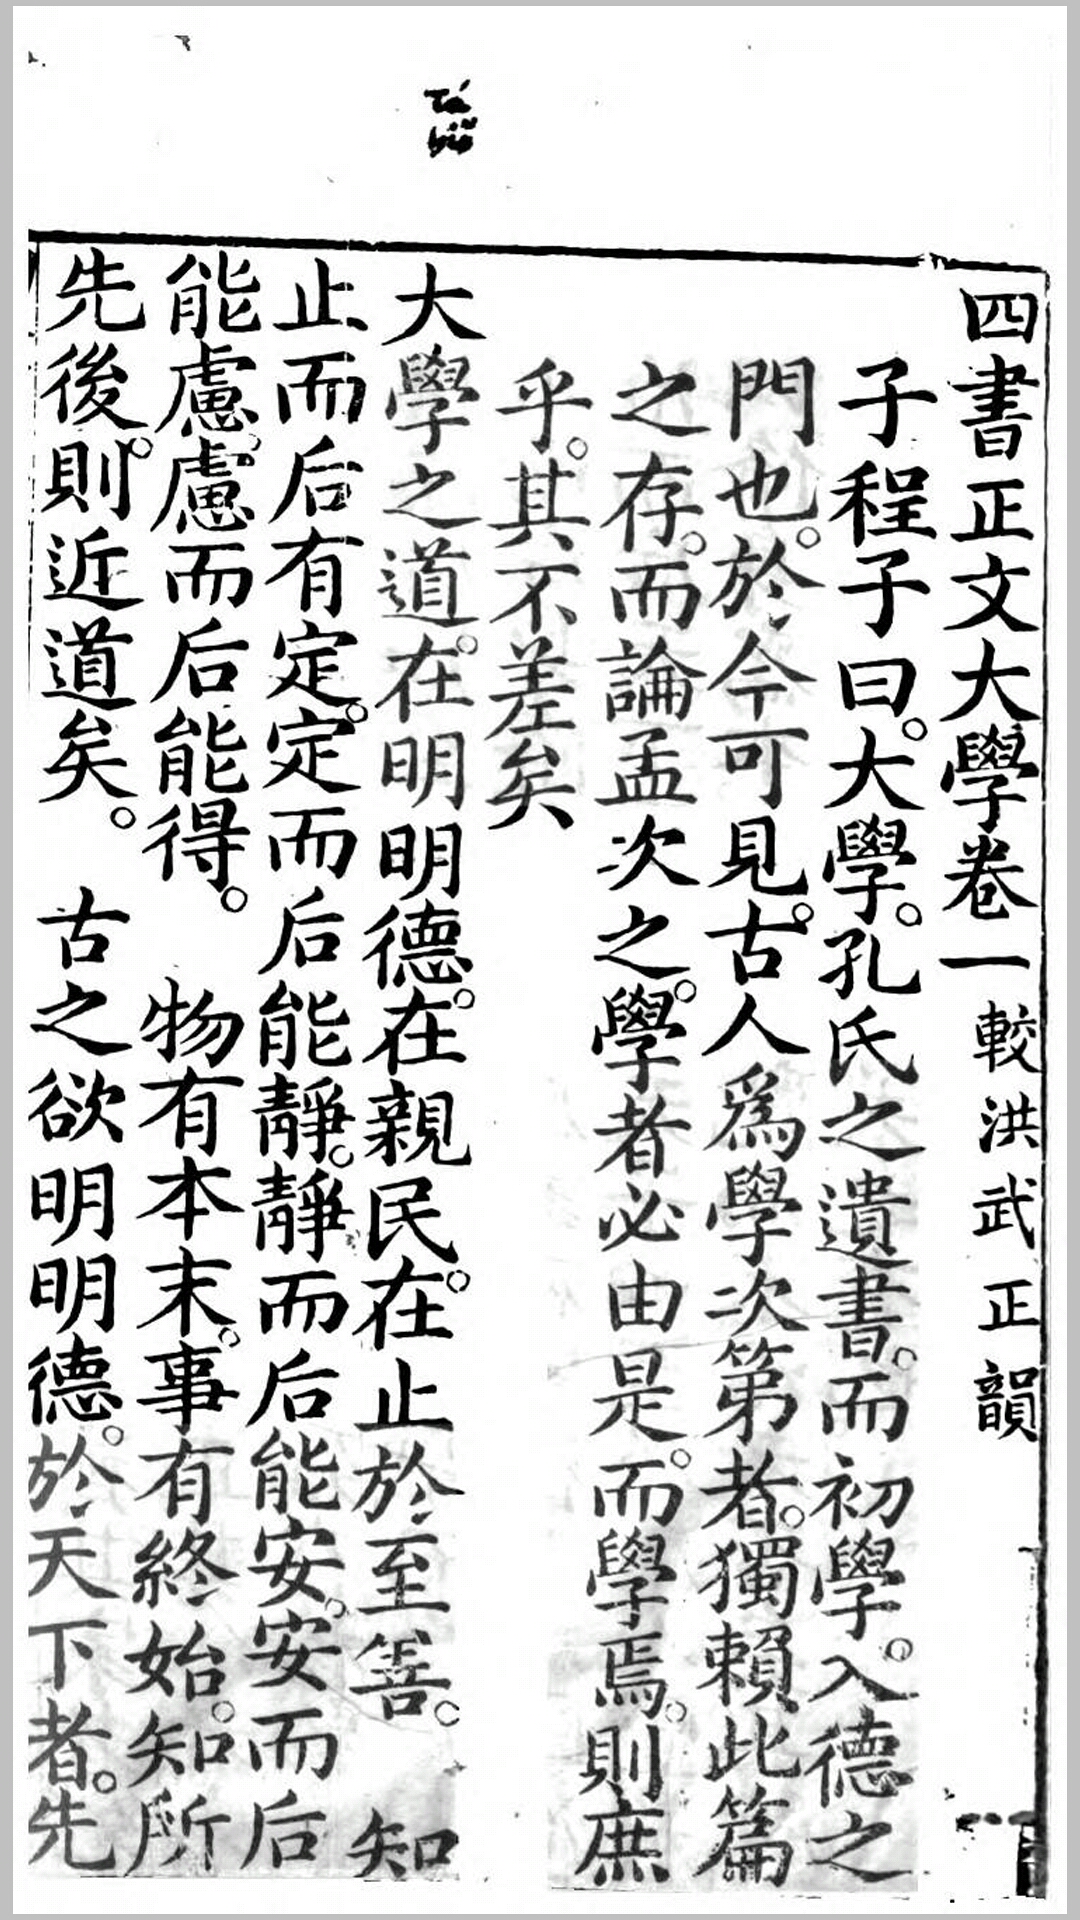 四書正文大學卷一 較洪武正韻
子程子曰。大學。孔氏之遺書。而初學。入德之
門也。於今可見。古人爲學次第者。獨賴此篇
之存。而論孟次之。學者必由是。而學焉。則庶
乎。其不差矣
大學之道。在明明德。在親民。在止於至善。 知
止而后有定。定而后能靜。靜而后能安。安而后
能慮。慮而后能得。 物有本末。事有終始。知所
先後。則近道矣。 古之欲明明德。於天下者。先